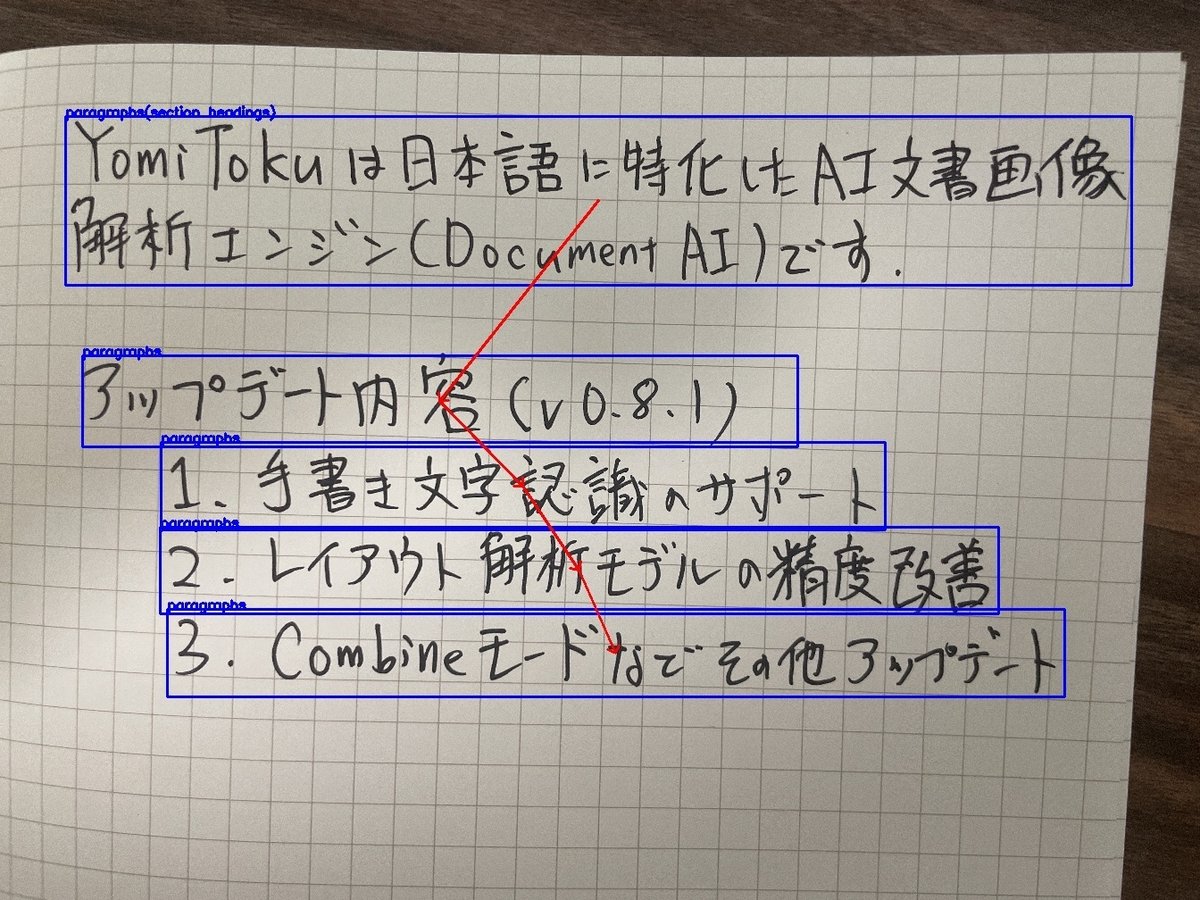 paragraphs(section_headings)
YomiTokuは日本語に特化したAI文書画像
解析エンジン(Document AI)です.
paragraphs
アップデート内容(v0.8.1)
paragraphs
1. 手書き文字認識のサポート
paragraphs
2. レイアウト解析モデルの精度改善
paragraphs
3. Combineモードなでその他アップデート